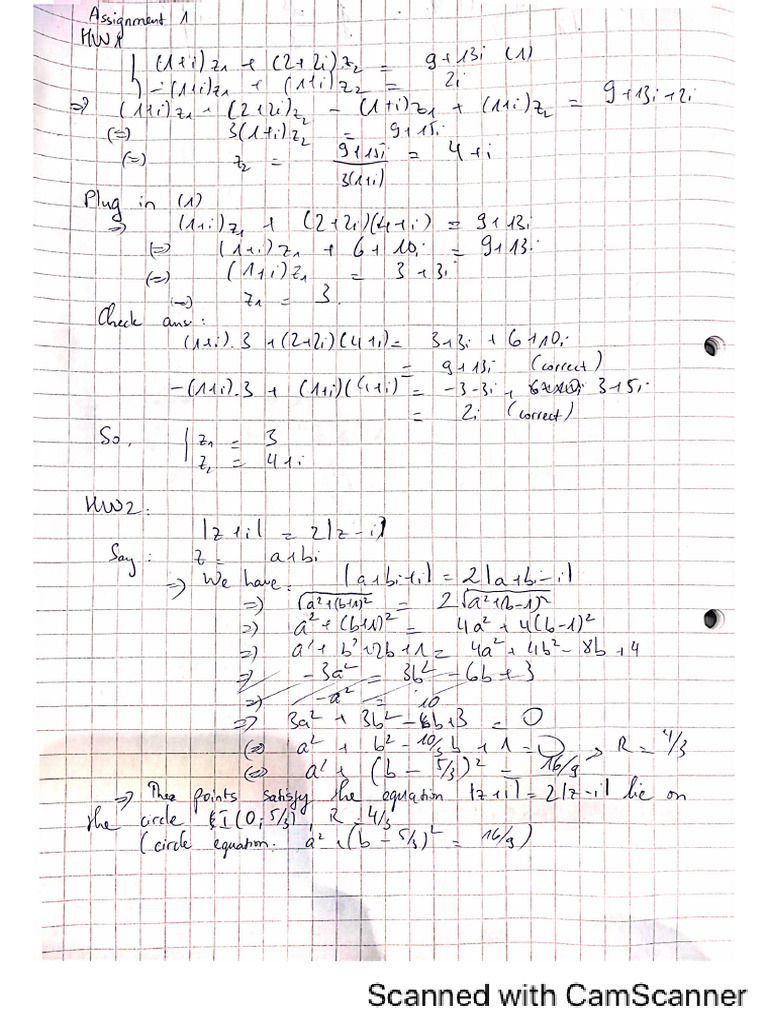 Assignment 1
HW1
(1+i)z₁ + (2+2i)z₂ = 9+13i (1)
-(1+i)z₁ + (1+i)z₂ = 2i
⇒ (1+i)z₁ + (2+2i)z₂ - (1+i)z₁ + (1+i)z₂ = 9+13i+2i
(=) 3(1+i)z₂ = 9+15i
(=) z₂ = 9+15i / 3(1+i) = 4+i
Plug in (1)
⇒ (1+i)z₁ + (2+2i)(4+i) = 9+13i
(=) (1+i)z₁ + 6+10i = 9+13i
(=) (1+i)z₁ = 3+3i
(=) z₁ = 3.
Check ans:
(1+i).3 + (2+2i)(4+i) = 3+3i + 6+10i
= 9+13i (correct)
-(1+i).3 + (1+i)(4+i) = -3-3i + 3+5i
= 2i (correct)
So, z₁ = 3
z₂ = 4+i
HW2:
|z+i| = 2|z-i|
Say: z = a+bi
⇒ We have: |a+bi+i| = 2|a+bi-i|
⇒ √(a²+(b+1)²) = 2√(a²+(b-1)²)
⇒ a²+(b+1)² = 4a²+4(b-1)²
⇒ a²+b²+2b+1 = 4a²+4b²-8b+4
⇒ -3a² = 3b²-6b+3
⇒ -a² = 10
⇒ 3a² + 3b² - b+3 = 0
(=) a² + b² - 10/3 b + 1 = 0 → R = 4/3
(=) a² + (b - 5/3)² = 16/9
⇒ The points satisfy the equation |z+i| = 2|z-i| lie on
the circle I(0; 5/3), R = 4/3
(circle equation: a² + (b - 5/3)² = 16/9)
Scanned with CamScanner